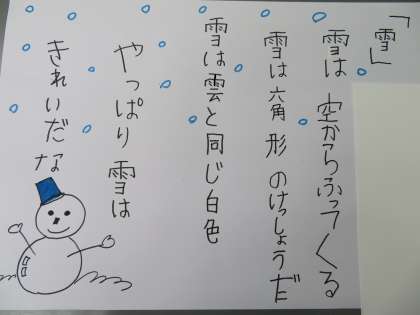 「雪」
雪は空からふってくる
雪は六角形のけっしょうだ
雪は雲と同じ白色
やっぱり雪は
きれいだな